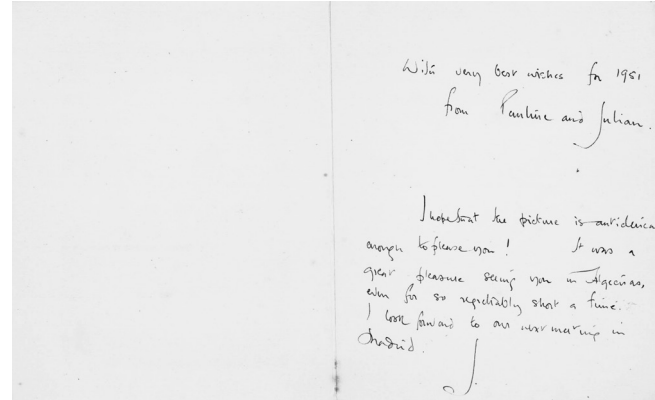 With very best wishes for 1951
from Pauline and Julian.
I hope that the picture is anticlerical
enough to please you! It was a
great pleasure seeing you in Algeciras,
even for so regrettably short a time.
I look forward to our next meeting in
Madrid.
J.